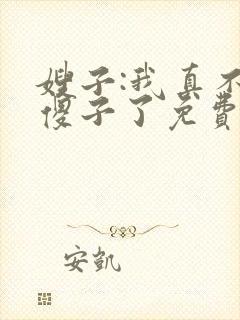 嫂子:我真不
傻子了免费
安凯